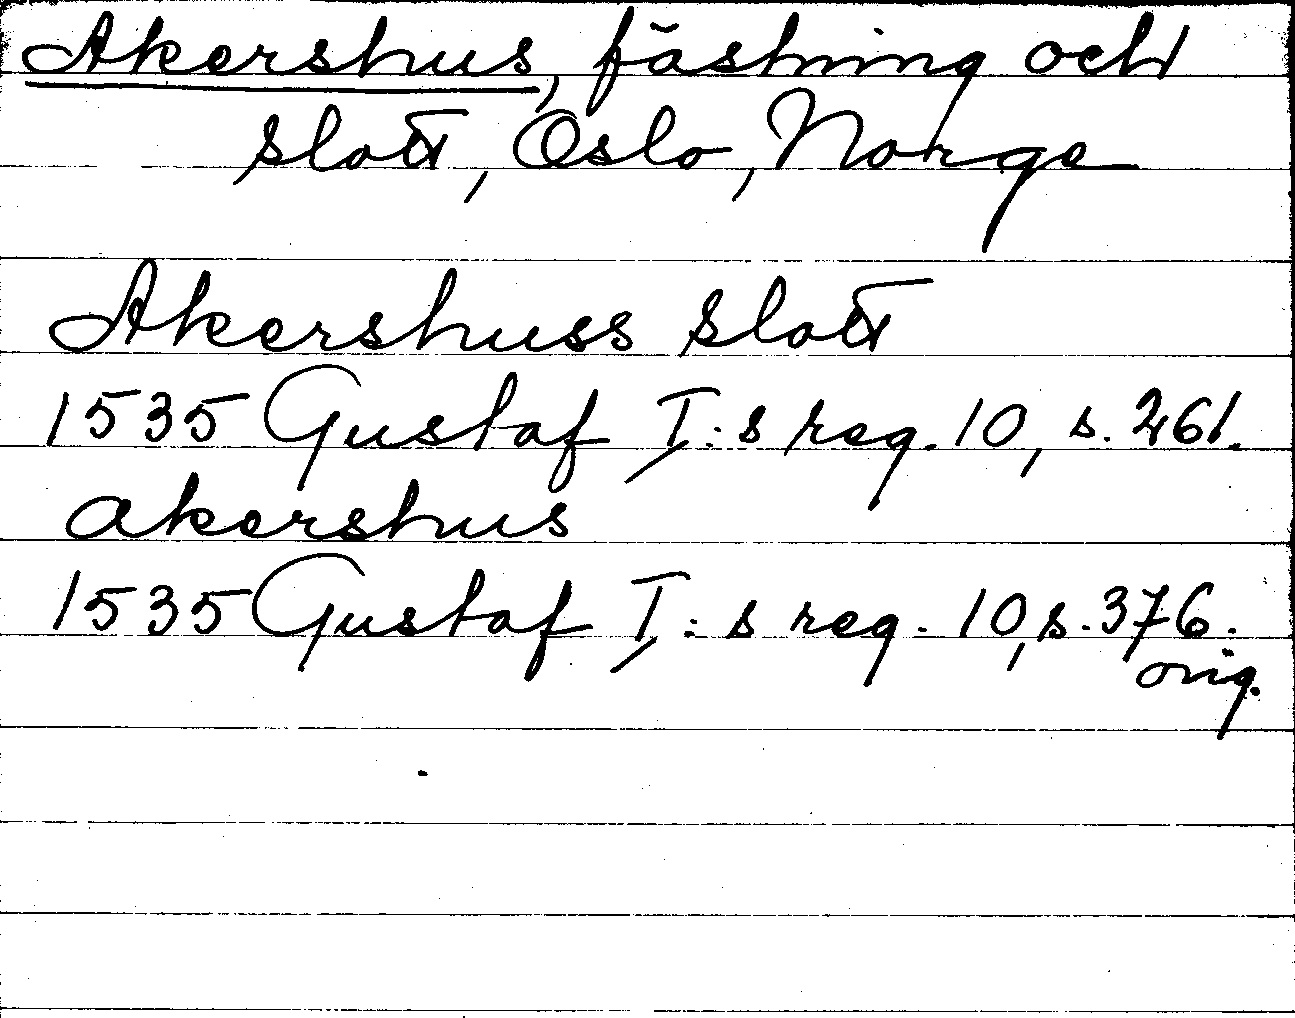 Akershus, fästning och
slott, Oslo, Norge
Akershuss slott
1535 Gustaf I:s reg. 10, s. 261.
akershus
1535 Gustaf I:s reg. 10, s. 376.
orig.